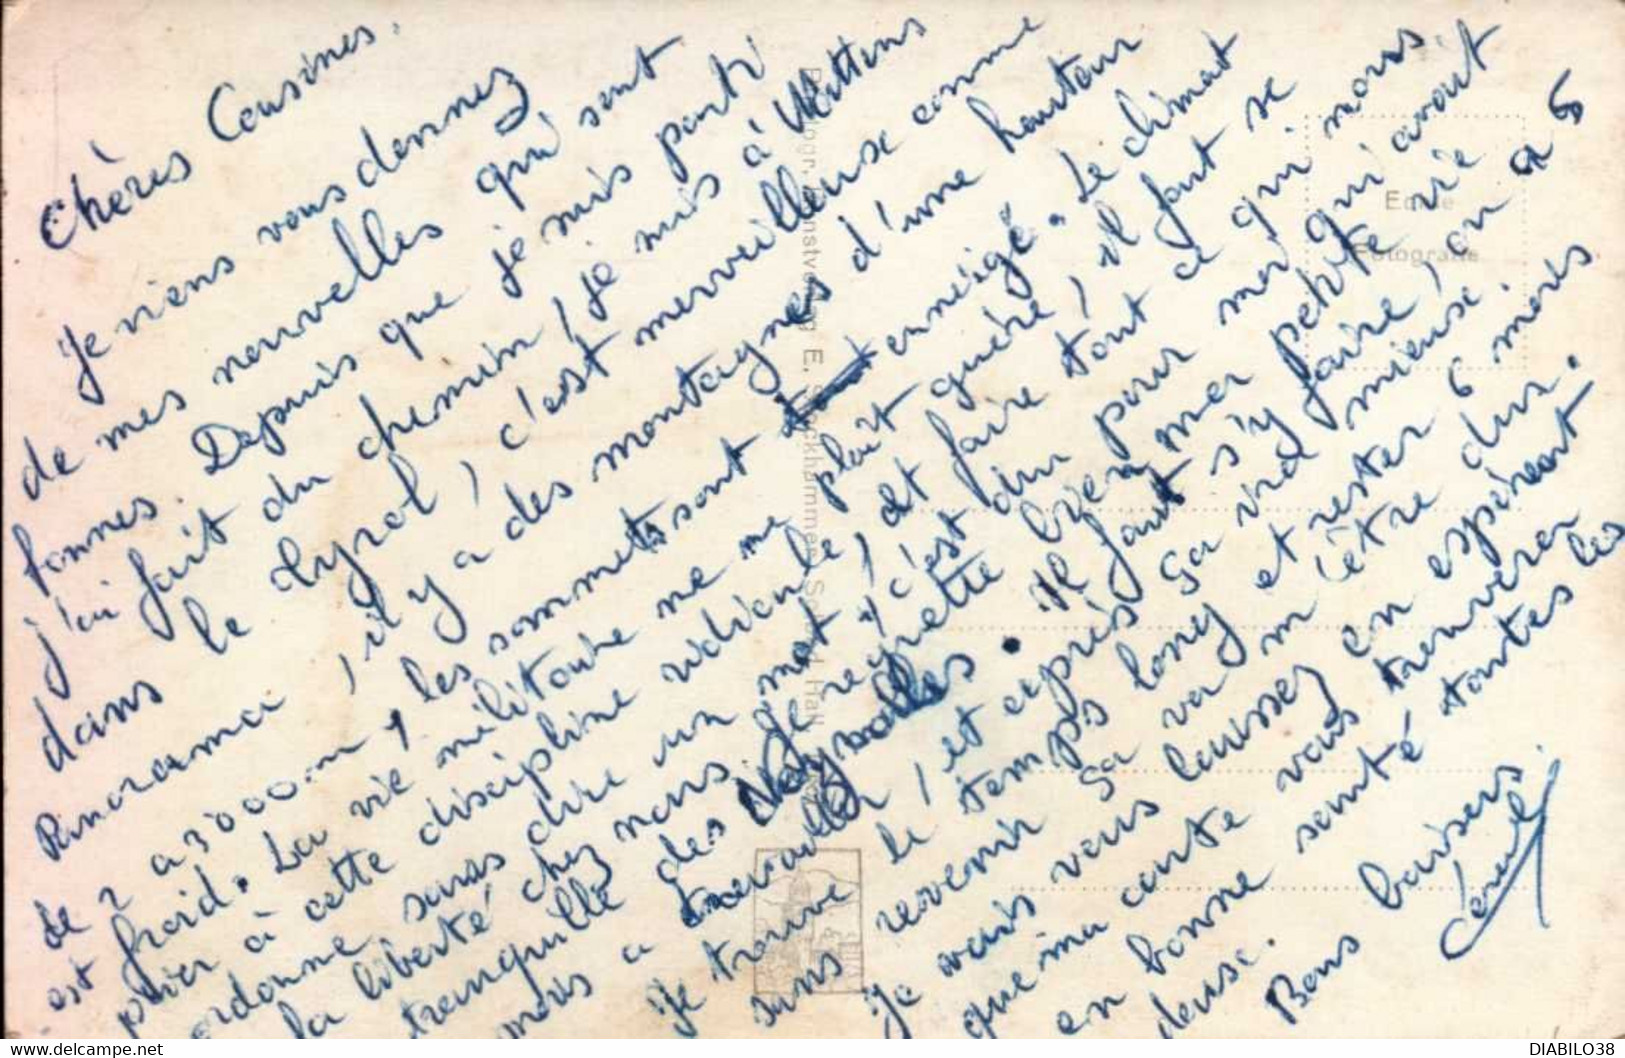 Chères Cousines,
Je viens vous donnez
de mes nouvelles qui sont
bonnes. Depuis que je suis parti
j'ai fait du chemin, je suis à Wattens
dans le Tyrol, c'est merveilleuse comme
Panorama, il y a des montagnes d'une hauteur
de 2 a 3000.m, les sommets sont enneigé. Le climat
est froid. La vie militaire ne me plait guère, il faut se
plier à cette discipline ridicule, et faire tout ce qui nous
ordonne sans dire un mot, c'est dur pour moi qui avait
la liberté chez nous. Je regrette bien ma petite vie
tranquille des . Il faut s'y faire, on a 5
mois a travailler, et après ça ira mieux.
Je trouve le temps long et rester 6 mois
sans revenir ça va m'être dur.
Je vais vous laissez en espérant
que ma carte vous trouvera
en bonne santé toutes les
deux.
Bons baisers
Echte
Fotografie
DIABILO38
www.delcampe.net